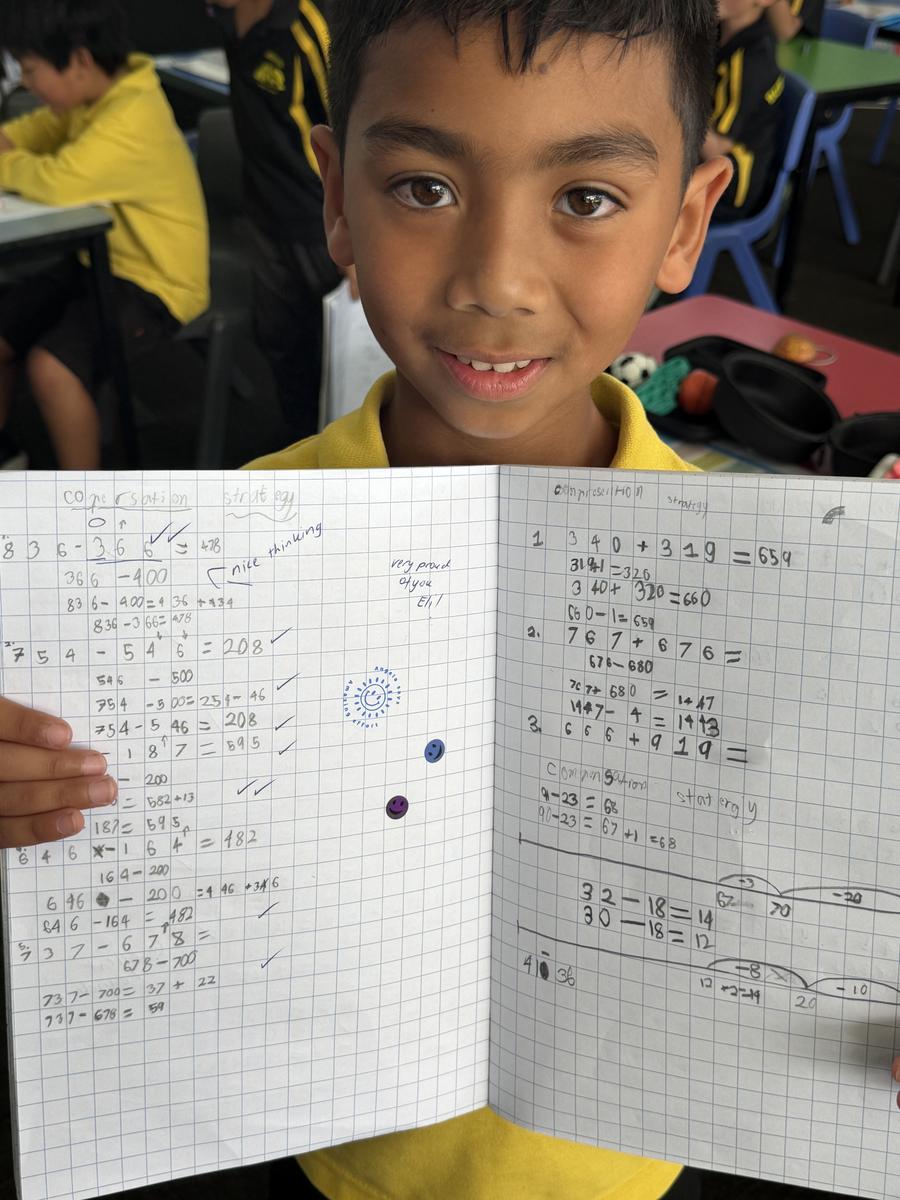 compersation strategy
836-366 = 478
nice thinking
366 - 400
836-400=436 + 34
836-366=478
very proud
of you
Eli!
2. 754 - 546 = 208
546 - 500
754 - 500=254-46
754-546 = 208
- 187 = 595
- 200
= 582+13
187= 595
646 - 164 = 482
164-200
646 - 200 =446 +36
646 -164 = 482
5. 737 - 678 =
678-700
737-700= 37 + 22
737-678 = 59
strategy
1 340 + 319 = 659
319+1 =320
340+ 320=660
660-1=659
2. 767 + 676 =
676-680
767+ 680 = 1447
1447- 4 = 1443
3. 666 + 919 =
Compensation statergy
91-23 = 68
90-23 = 67 +1 =68
-3
-20
67
70
32-18=14
30-18=12
41 36
-8
-10
12 +2=14
20